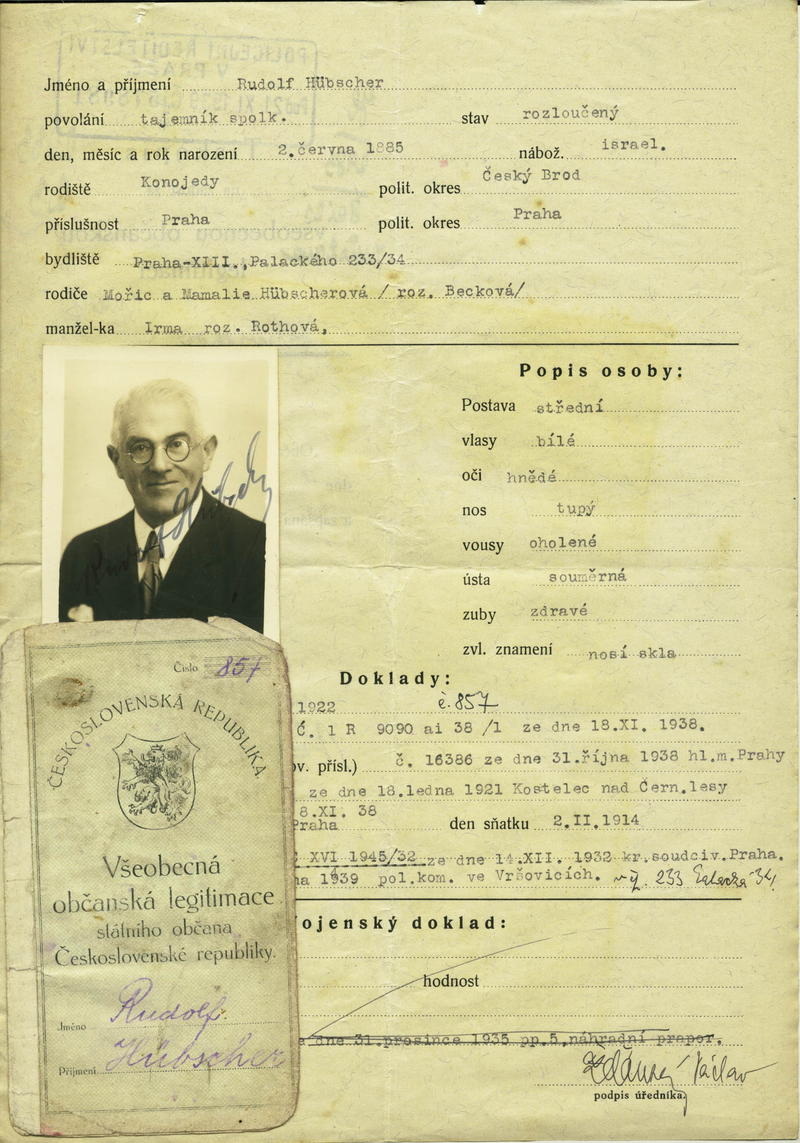 Jméno a příjmení Rudolf Hübscher
povolání tajemník spolk. stav rozloučený
den, měsíc a rok narození 2.června 1885 nábož. israel.
rodiště Konojedy polit. okres Český Brod
příslušnost Praha polit. okres Praha
bydliště Praha-XIII.,Palackého 233/34
rodiče Mořic a Mamalie Hübscherová / roz. Becková/
manžel-ka Irma roz. Rothová,
Popis osoby:
Postava střední
vlasy bílé
oči hnědé
nos tupý
vousy oholené
ústa souměrná
zuby zdravé
zvl. znamení nosí skla
Rudolf Hübscher
Doklady:
1922 č.857
Č. 1 R 9090 ai 38 /1 ze dne 18.XI. 1938.
ov. přísl.) č. 16386 ze dne 31.října 1938 hl.m.Prahy
ze dne 18.ledna 1921 Kostelec nad Čern.lesy
8.XI. 38
Praha den sňatku 2.II.1914
XVI 1945/32 ze dne 14.XII. 1932 kr.soudciv.Praha.
na 1939 pol.kom. ve Vršovicích. 233 34
ojenský doklad:
hodnost
e dne 31.prosince 1935 pp.5.náhradní prapor.
Václav
podpis úředníka
Číslo 857
ČESKOSLOVENSKÁ REPUBLIKA
Všeobecná
občanská legitimace
státního občana
Československé republiky.
Jméno Rudolf
Příjmení Hübscher